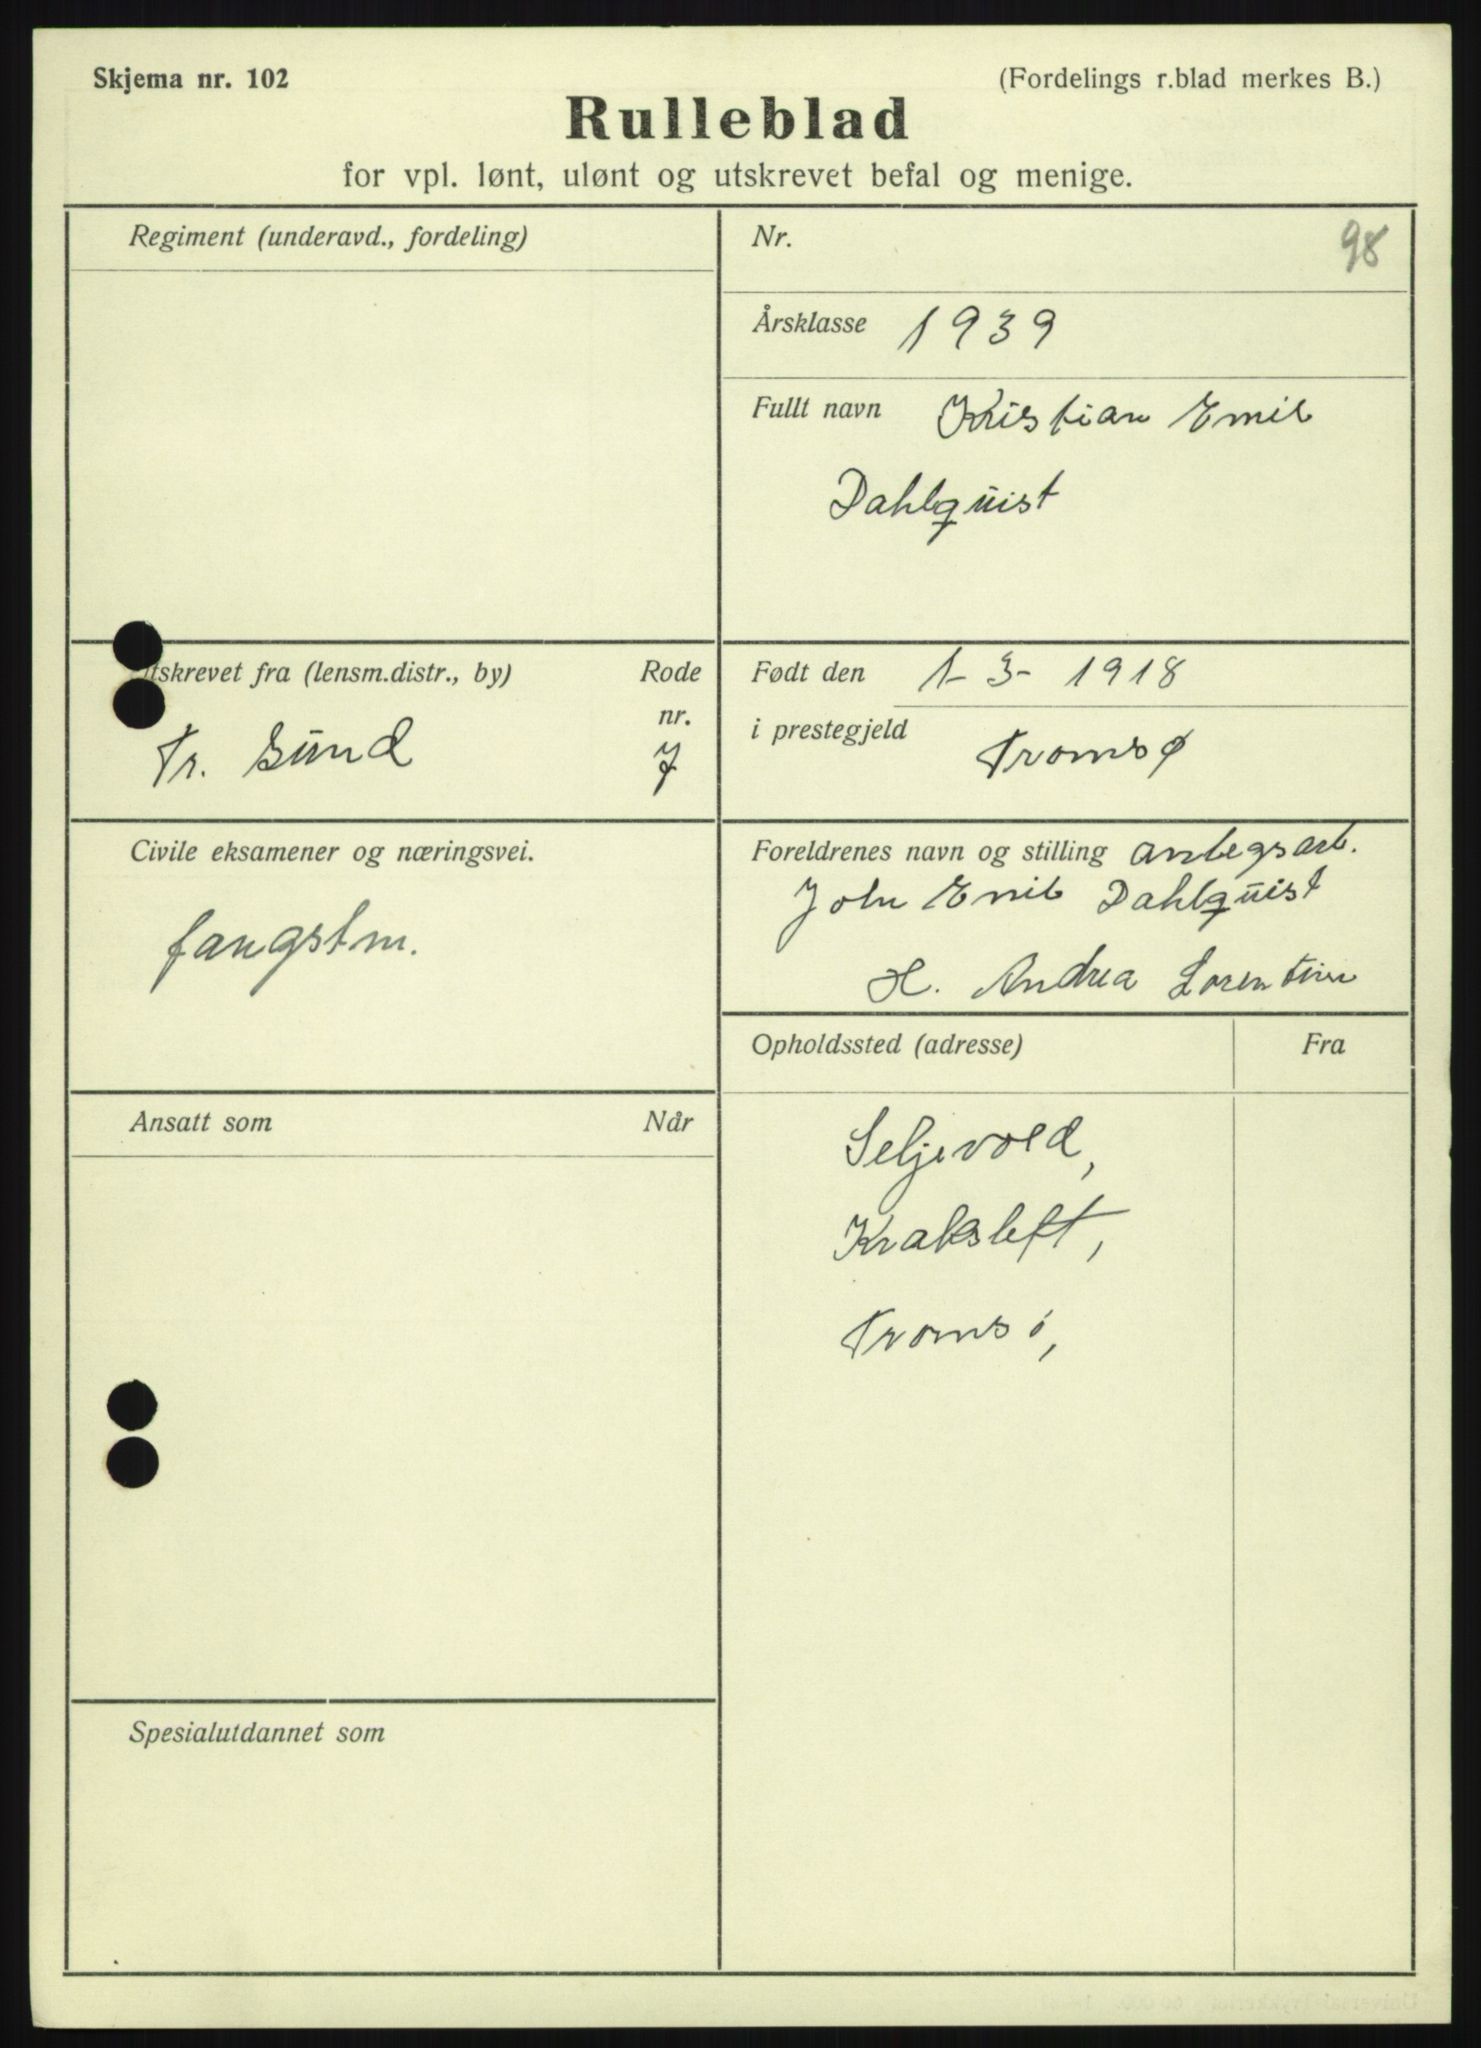 Skjema nr. 102
(Fordelings r.blad merkes B.)
Rulleblad
for vpl. lønt, ulønt og utskrevet befal og menige.
Regiment (underavd., fordeling)
Nr.
98
Årsklasse 1939
Fullt navn Kristian Emil
Dahlquist
tskrevet fra (lensm.distr., by)
Rode
nr.
Tr. sund
7
Født den 1-3-1918
i prestegjeld
Tromsø
Civile eksamener og næringsvei.
fangstm.
Foreldrenes navn og stilling anlegsarb.
John Emil Dahlquist
H. Andrea Lorentine
Opholdssted (adresse)
Fra
Seljevold,
Kraksleft,
Tromsø,
Ansatt som
Når
Spesialutdannet som